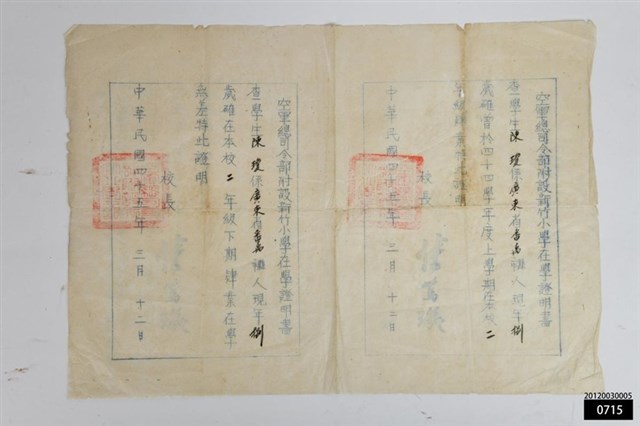 空軍總司令部附設新竹小學在學證明書
查學生陳瓊係廣東省番禺縣人現年捌
歲確曾於四十四學年度上學期在本校二
年級肄業特此證明
校長
中華民國四十五年 二月 十二日
空軍總司令部附設新竹小學在學證明書
查學生陳瓊係廣東省番禺縣人現年捌
歲確在本校二年級下期肄業在學
無差特此證明
校長
中華民國四十五年 三月 十二日
20120030005
0715